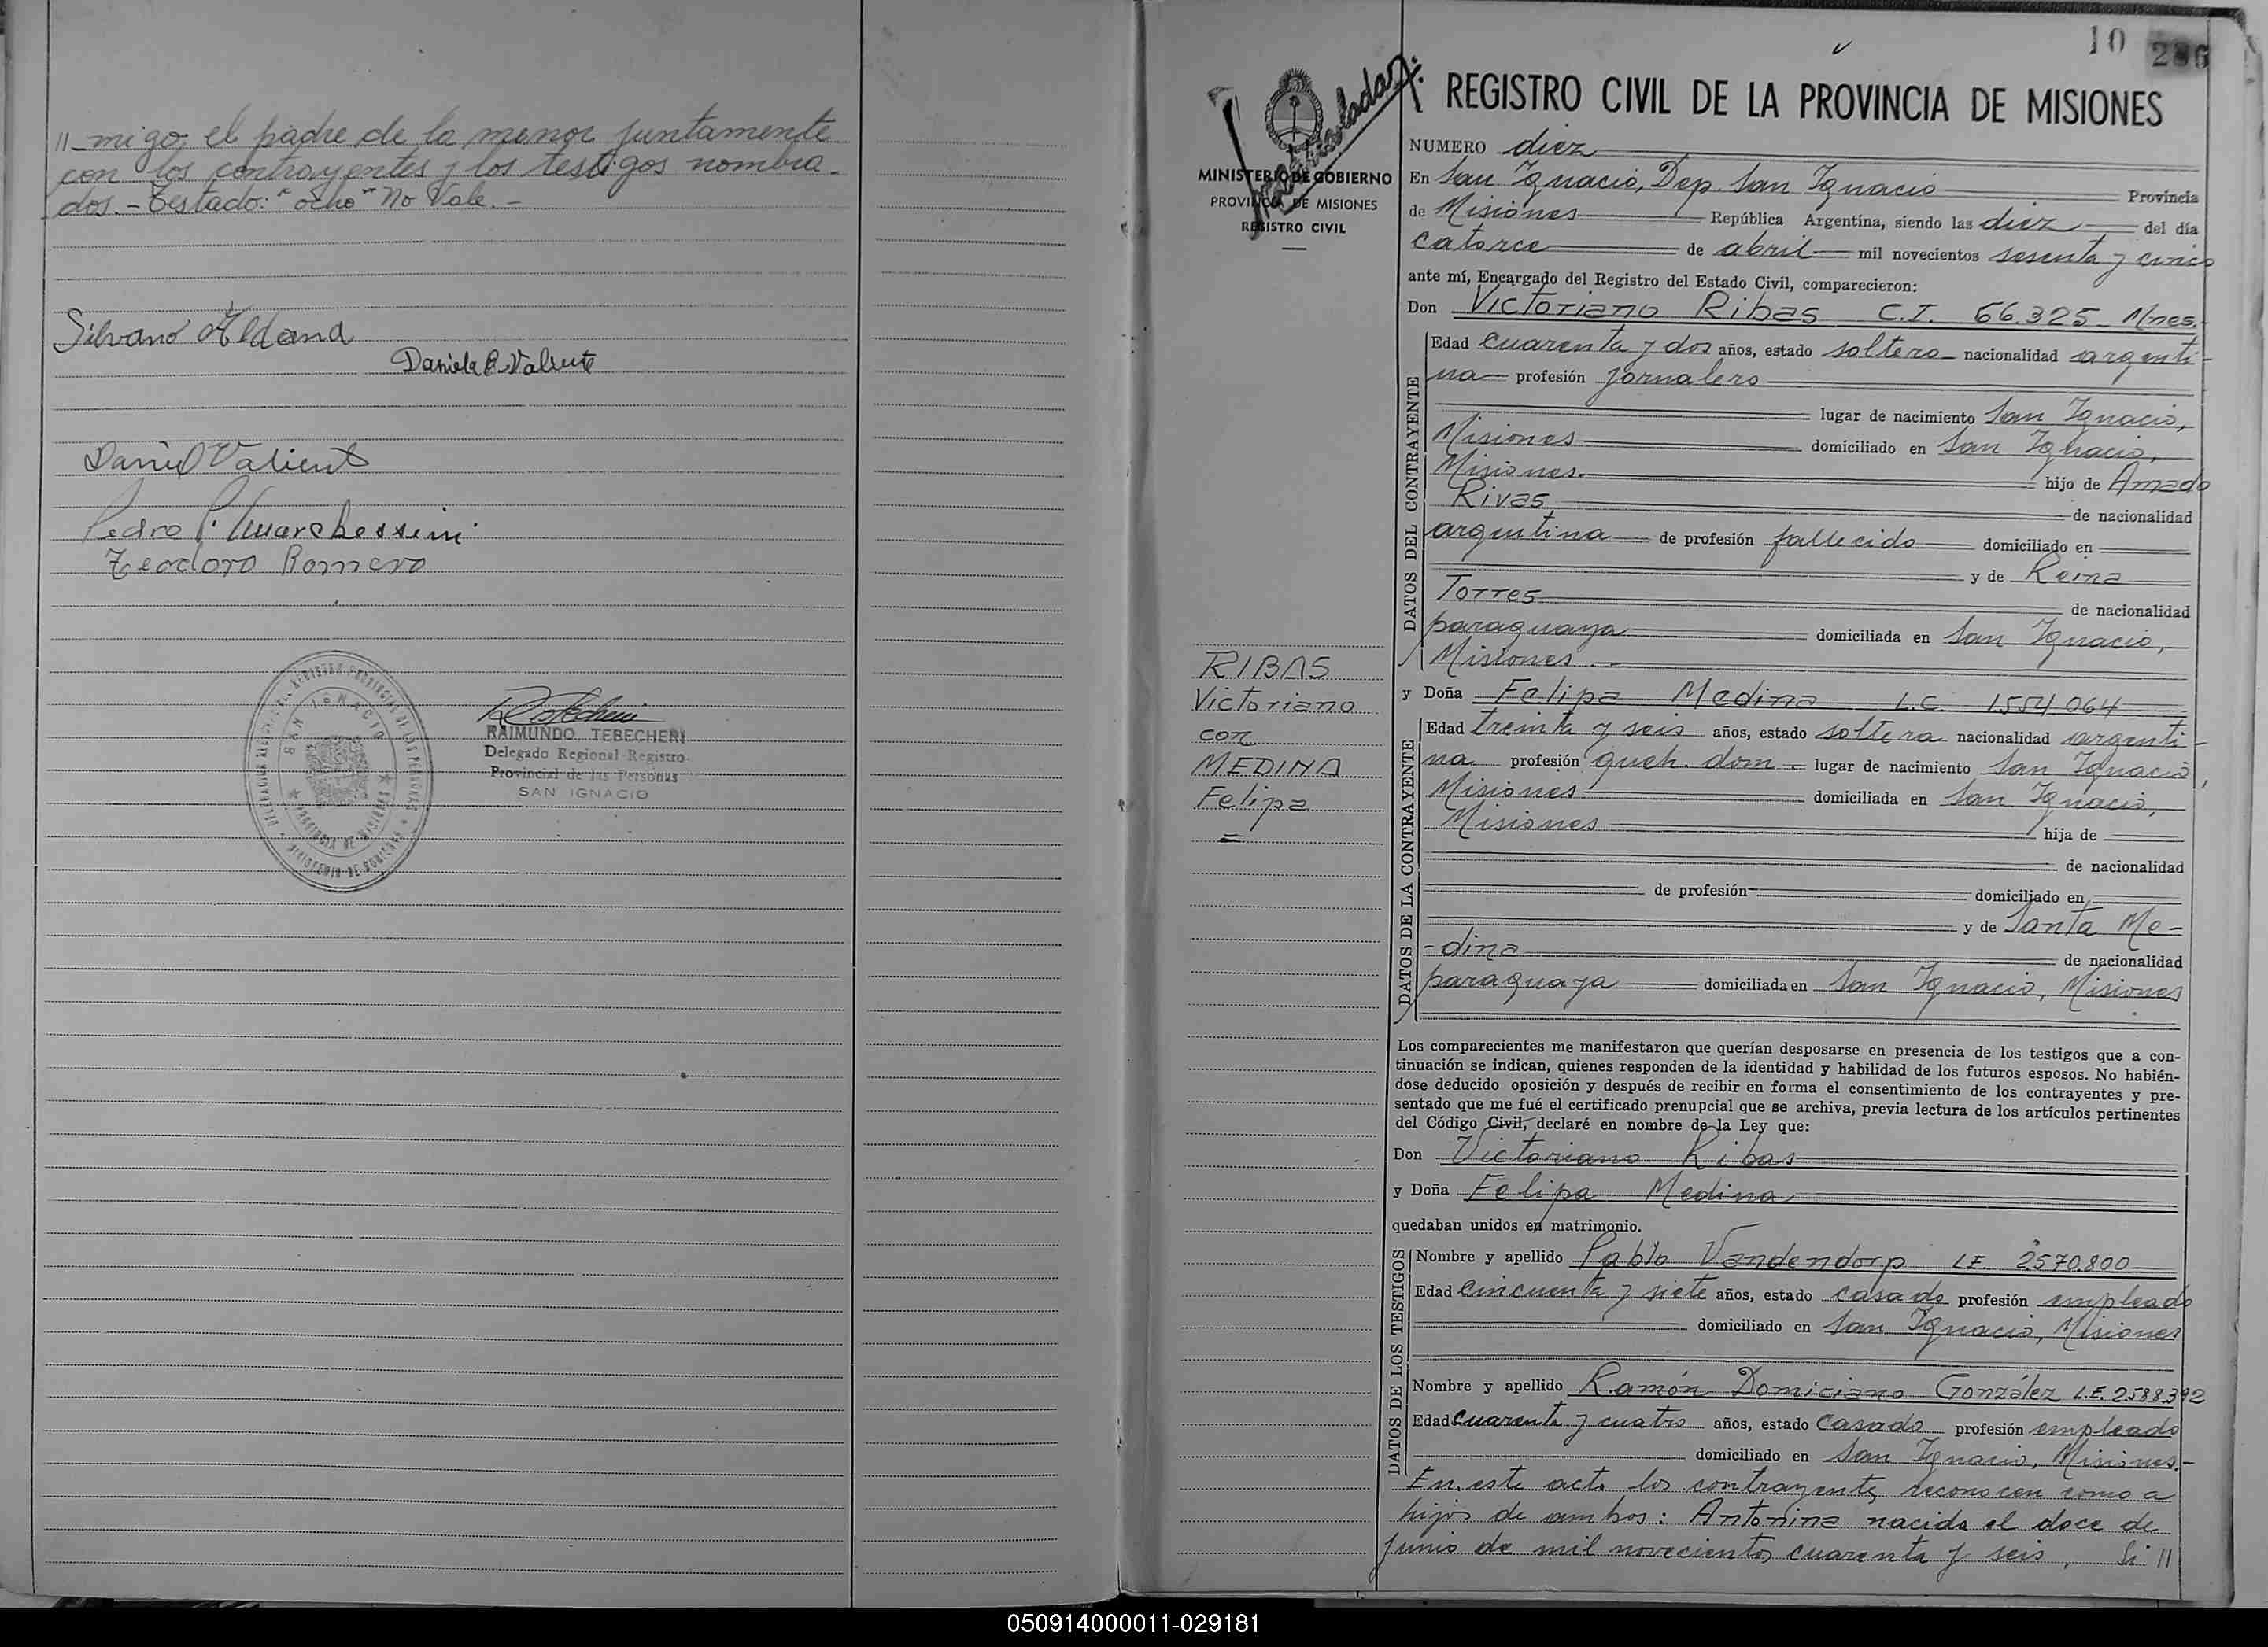 ||-migo, el padre de la menor juntamente
con los contrayentes y los testigos nombra-
dos.- Testado: "ocho" No Vale.-
Silvano Aldana
Daniela R. Valiente
Daniel Valiente
Pedro P. Marchessini
Teodoro Romero
SAN IGNACIO
RAIMUNDO TEBECHERI
Delegado Regional Registro
Provincial de las Personas
SAN IGNACIO
10 286
MINISTERIO DE GOBIERNO
PROVINCIA DE MISIONES
REGISTRO CIVIL
RIBAS
Victoriano
con
MEDINA
Felipa
=
REGISTRO CIVIL DE LA PROVINCIA DE MISIONES
NUMERO diez
En San Ignacio, Dep. San Ignacio Provincia
de Misiones República Argentina, siendo las diez del día
catorce de abril mil novecientos sesenta y cinco
ante mí, Encargado del Registro del Estado Civil, comparecieron:
Don Victoriano Ribas C.I. 66.325 Mnes.
DATOS DEL CONTRAYENTE
Edad cuarenta y dos años, estado soltero nacionalidad argenti-
na profesión jornalero
lugar de nacimiento San Ignacio,
Misiones domiciliado en San Ignacio,
Misiones. hijo de Amado
Rivas de nacionalidad
argentina de profesión fallecido domiciliado en
y de Reina
Torres de nacionalidad
paraguaya domiciliada en San Ignacio,
Misiones.-
y Doña Felipa Medina L.C. 1.554.064
DATOS DE LA CONTRAYENTE
Edad treinta y seis años, estado soltera nacionalidad argenti-
na profesión queh. dom. lugar de nacimiento San Ignacio,
Misiones domiciliada en San Ignacio,
Misiones hija de
de nacionalidad
de profesión domiciliado en
y de Santa Me-
-dina de nacionalidad
paraguaya domiciliada en San Ignacio, Misiones
Los comparecientes me manifestaron que querían desposarse en presencia de los testigos que a con-
tinuación se indican, quienes responden de la identidad y habilidad de los futuros esposos. No habién-
dose deducido oposición y después de recibir en forma el consentimiento de los contrayentes y pre-
sentado que me fué el certificado prenupcial que se archiva, previa lectura de los artículos pertinentes
del Código Civil, declaré en nombre de la Ley que:
Don Victoriano Ribas
y Doña Felipa Medina
quedaban unidos en matrimonio.
DATOS DE LOS TESTIGOS
Nombre y apellido Pablo Vandendorp L.E. 2570.800
Edad cincuenta y siete años, estado casado profesión empleado
domiciliado en San Ignacio, Misiones
Nombre y apellido Ramón Domiciano González L.E. 2.588.392
Edad cuarenta y cuatro años, estado casado profesión empleado
domiciliado en San Ignacio, Misiones.-
En este acto los contrayentes reconocen como a
hijos de ambos: Antonina nacida el doce de
junio de mil novecientos cuarenta y seis, Si ||
050914000011-029181